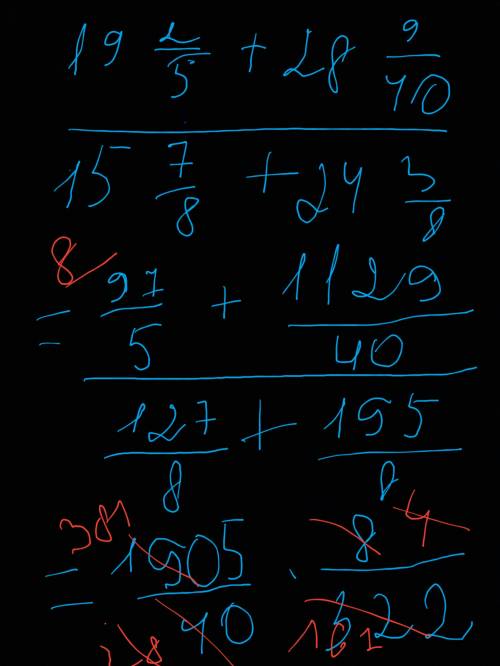 19 2/5 + 28 9/40
15 7/8 + 24 3/8
8
= 97/5 + 1129/40
127/8 + 195/8
381 4
= 1905/40 · 8/322
8 161